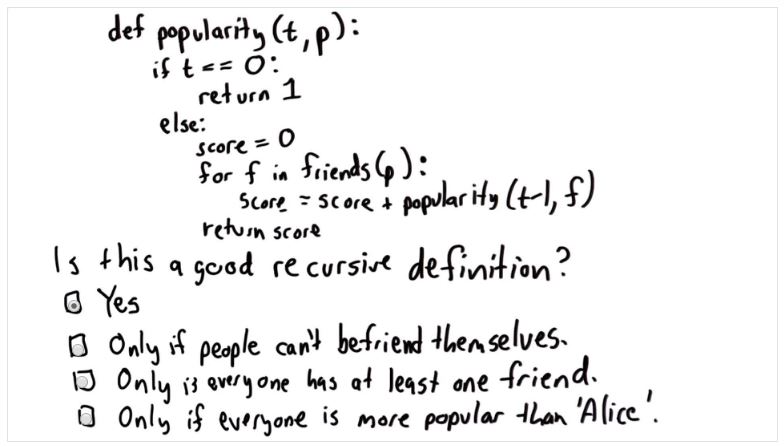 def popularity(t,p):
if t == 0:
return 1
else:
score = 0
for f in friends(p):
score = score + popularity(t-1, f)
return score
Is this a good recursive definition?
Yes
Only if people can't befriend themselves.
Only is everyone has at least one friend.
Only if everyone is more popular than 'Alice'.